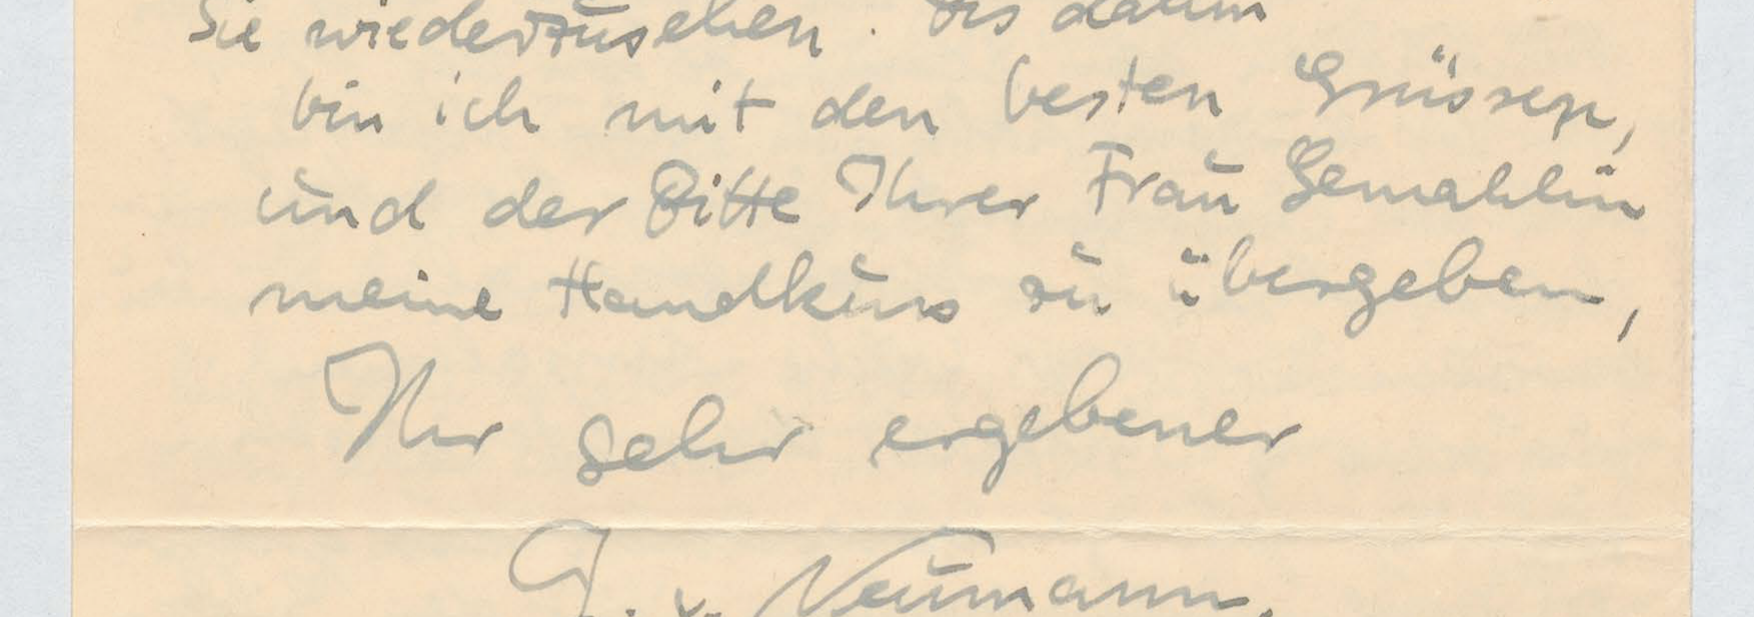 Sie wiederzusehen. Bis dahin
bin ich mit den besten Grüssen,
und der Bitte Ihrer Frau Gemahlin
meine Handkuss zu übergeben,
Ihr sehr ergebener
J. v. Neumann.